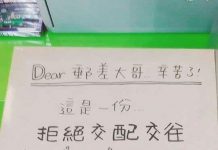 Dear 郵差大哥...辛苦了!
這是一份...
拒絕交配交往